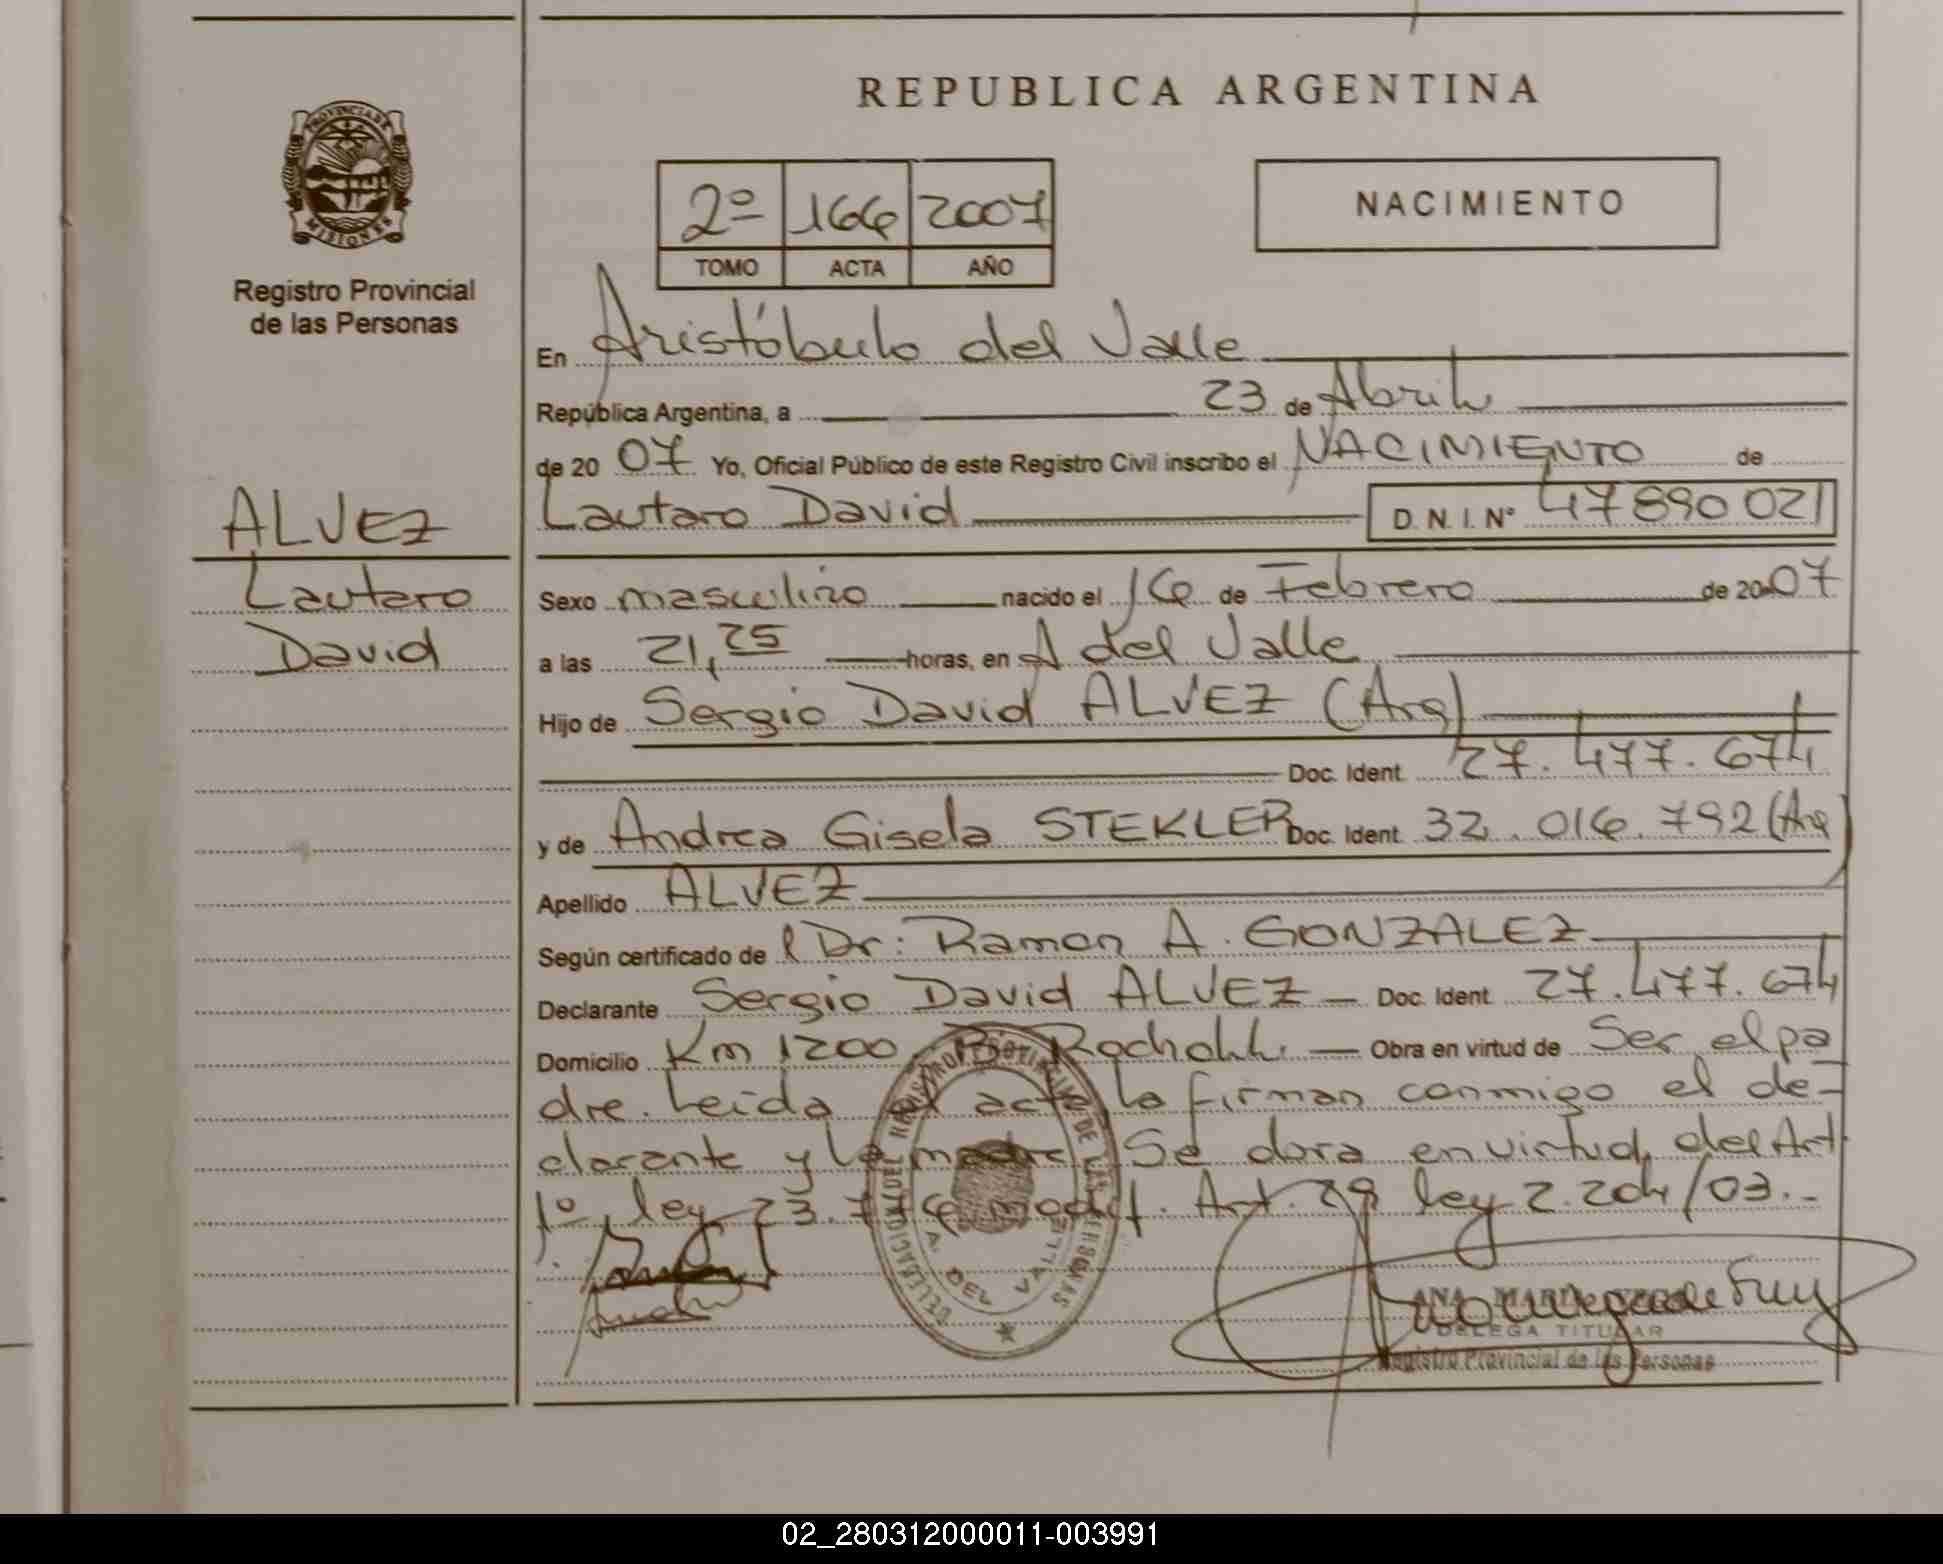 REPUBLICA ARGENTINA
PROVINCIA DE MISIONES
Registro Provincial
de las Personas
2º 166 2007
TOMO ACTA AÑO
NACIMIENTO
En Aristóbulo del Valle
República Argentina, a 23 de Abril
de 20 07 Yo, Oficial Público de este Registro Civil inscribo el NACIMIENTO de
ALVEZ
Lautaro David D. N. I. Nº 47890021
Lautaro
David
Sexo masculino nacido el 16 de Febrero de 20 07
a las 21,25 horas, en A del Valle
Hijo de Sergio David ALVEZ (Arg)
Doc. Ident. 27.477.674
y de Andrea Gisela STEKLER Doc. Ident. 32.016.792 (Arg)
Apellido ALVEZ
Según certificado de l Dr: Ramon A. GONZALEZ
Declarante Sergio David ALVEZ Doc. Ident. 27.477.674
Domicilio Km 1200 Obra en virtud de Ser el pa
dre. Leida el acta la firman conmigo el de-
clarante y la madre Se dora en virtud del Art.
1º ley 23.776 modif. Art. 29 ley 2.204/03.-
DELEGACION DEL REGISTRO PROVINCIAL DE LAS PERSONAS
A. DEL VALLE
ANA MARIA
DELEGA TITULAR
Registro Provincial de las Personas
02_280312000011-003991